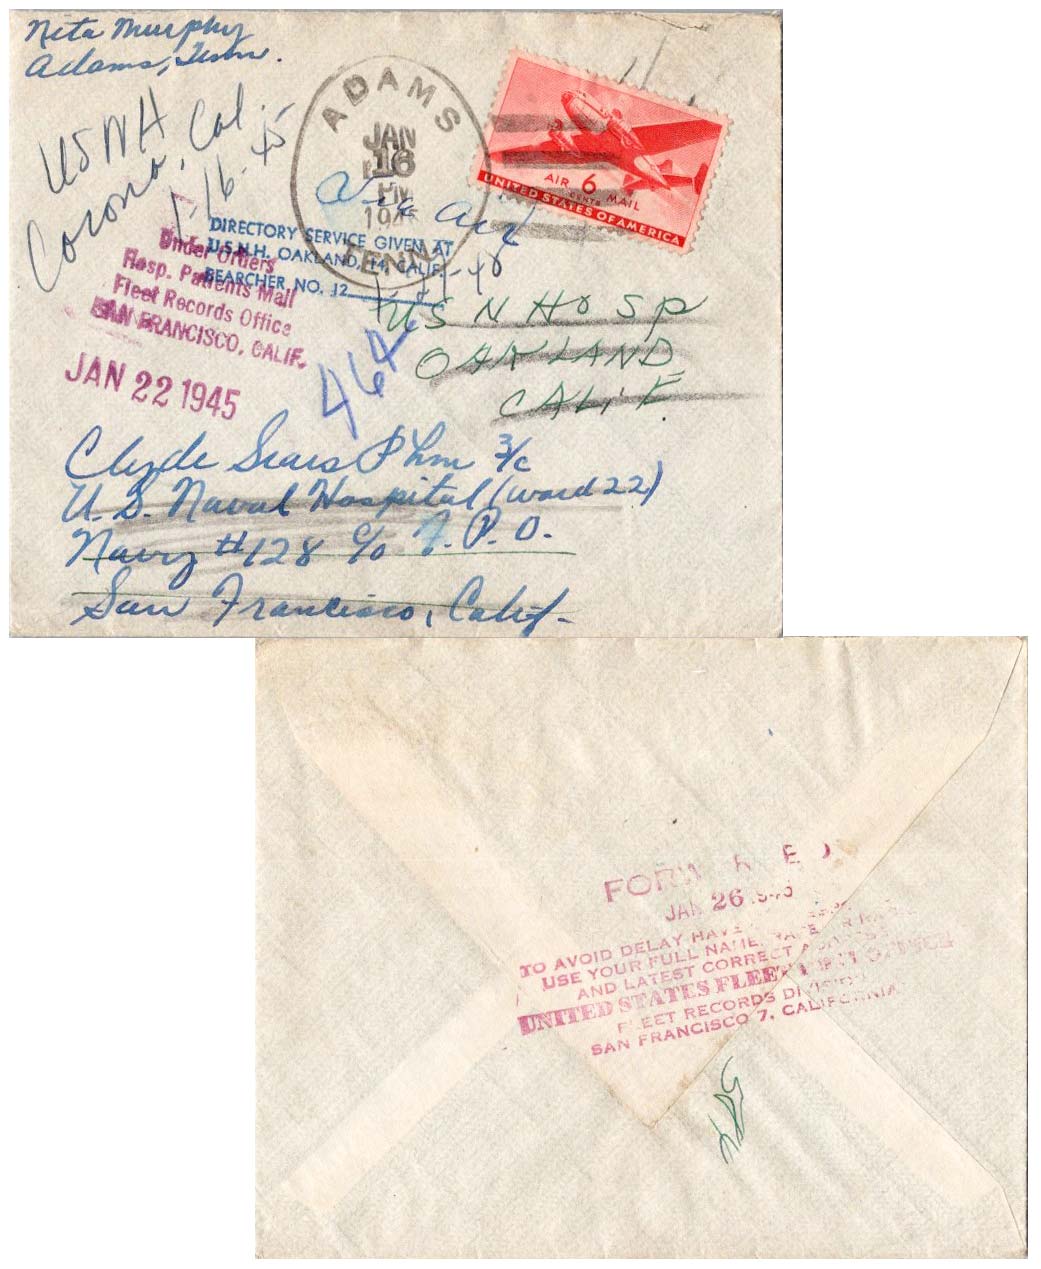 Neta Murphy
Adams, Tenn.
USNH
Corona, Cal.
1-16-45
ADAMS
JAN
16
PM
194
TENN.
Via Air
AIR 6 MAIL
CENTS
UNITED STATES OF AMERICA
DIRECTORY SERVICE GIVEN AT
U.S.N.H. OAKLAND, 14, CALIF.
SEARCHER NO. 12
Under Orders
Hosp. Patients Mail
Fleet Records Office
SAN FRANCISCO, CALIF.
JAN 22 1945
464
U S N HOSP
OAKLAND
CALIF.
Clyde Sears Phm 3/c
U. S. Naval Hospital (Ward 22)
Navy #128 c/o F. P. O.
San Francisco, Calif.
FORW R E D
JAN 26
TO AVOID DELAY HAVE
USE YOUR FULL NAME, RATE OR RANK
AND LATEST CORRECT ADDRESS
UNITED STATES FLEET POST OFFICE
FLEET RECORDS DIVISION
SAN FRANCISCO 7, CALIFORNIA